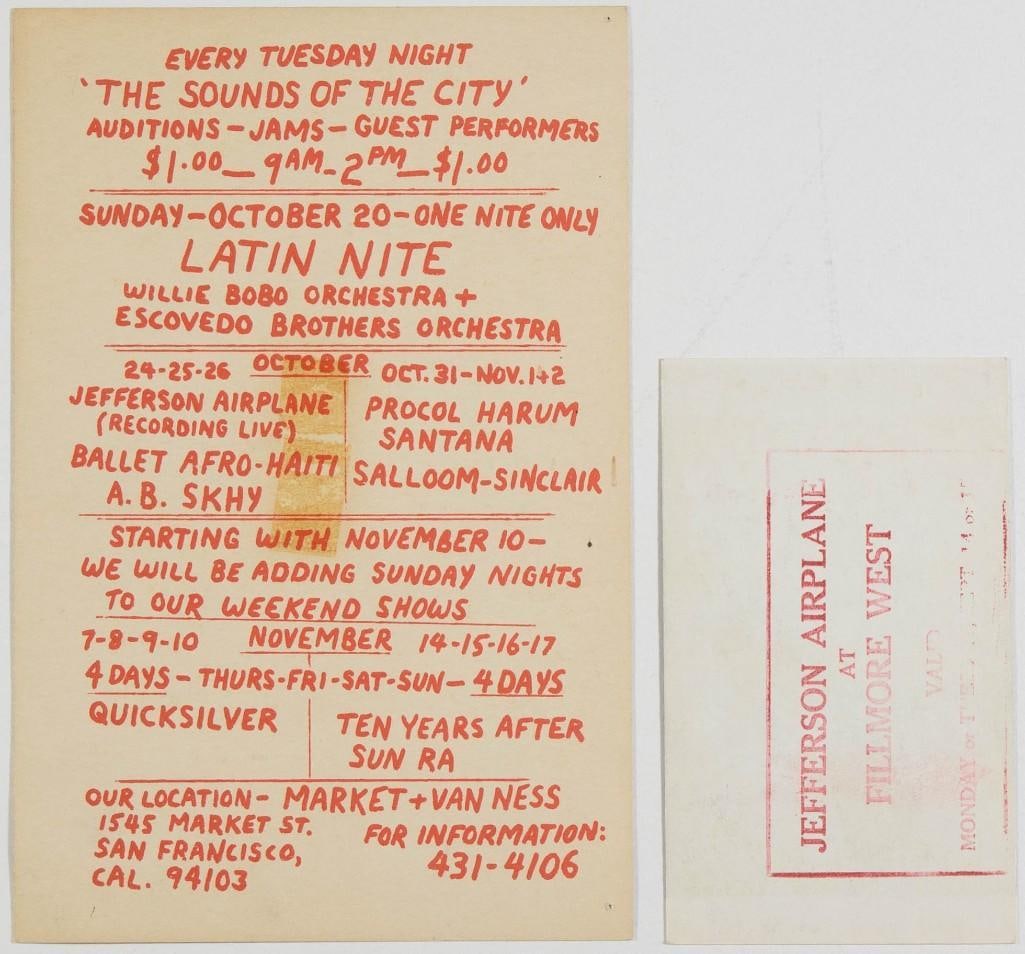 EVERY TUESDAY NIGHT
'THE SOUNDS OF THE CITY'
AUDITIONS - JAMS - GUEST PERFORMERS
$1.00 - 9AM - 2PM - $1.00
SUNDAY - OCTOBER 20 - ONE NITE ONLY
LATIN NITE
WILLIE BOBO ORCHESTRA +
ESCOVEDO BROTHERS ORCHESTRA
OCTOBER
24-25-26
JEFFERSON AIRPLANE
(RECORDING LIVE)
BALLET AFRO-HAITI
A.B. SKHY
OCT. 31 - NOV. 1+2
PROCOL HARUM
SANTANA
SALLOOM-SINCLAIR
STARTING WITH NOVEMBER 10 -
WE WILL BE ADDING SUNDAY NIGHTS
TO OUR WEEKEND SHOWS
7-8-9-10 NOVEMBER 14-15-16-17
4 DAYS - THURS-FRI-SAT-SUN - 4 DAYS
QUICKSILVER
TEN YEARS AFTER
SUN RA
OUR LOCATION - MARKET + VAN NESS
1545 MARKET ST.
SAN FRANCISCO,
CAL. 94103
FOR INFORMATION:
431-4106
JEFFERSON AIRPLANE
AT
FILLMORE WEST
VALID
MONDAY or